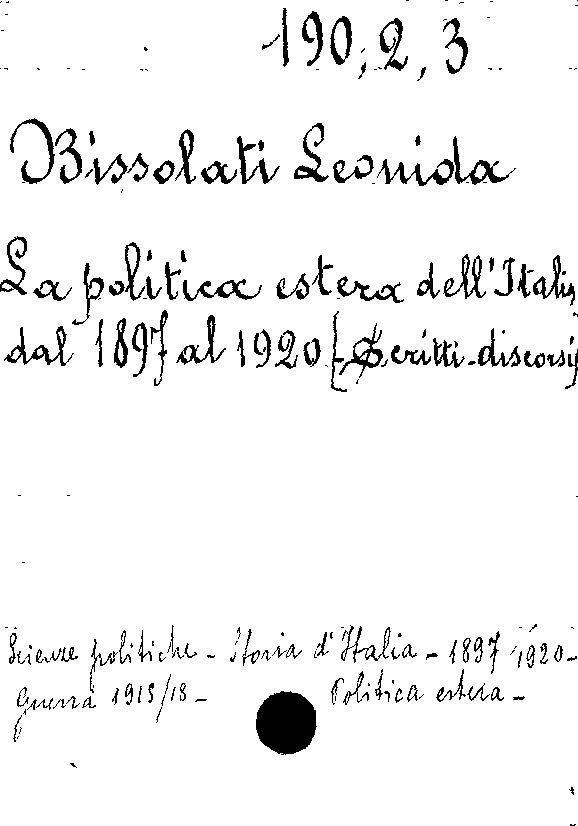 190, 2, 3
Bissolati Leonida
La politica estera dell'Italia
dal 1897 al 1920 [Scritti - discorsi]
Scienze politiche - Storia d'Italia - 1897-1920 -
Guerra 1915/18 - Politica estera -